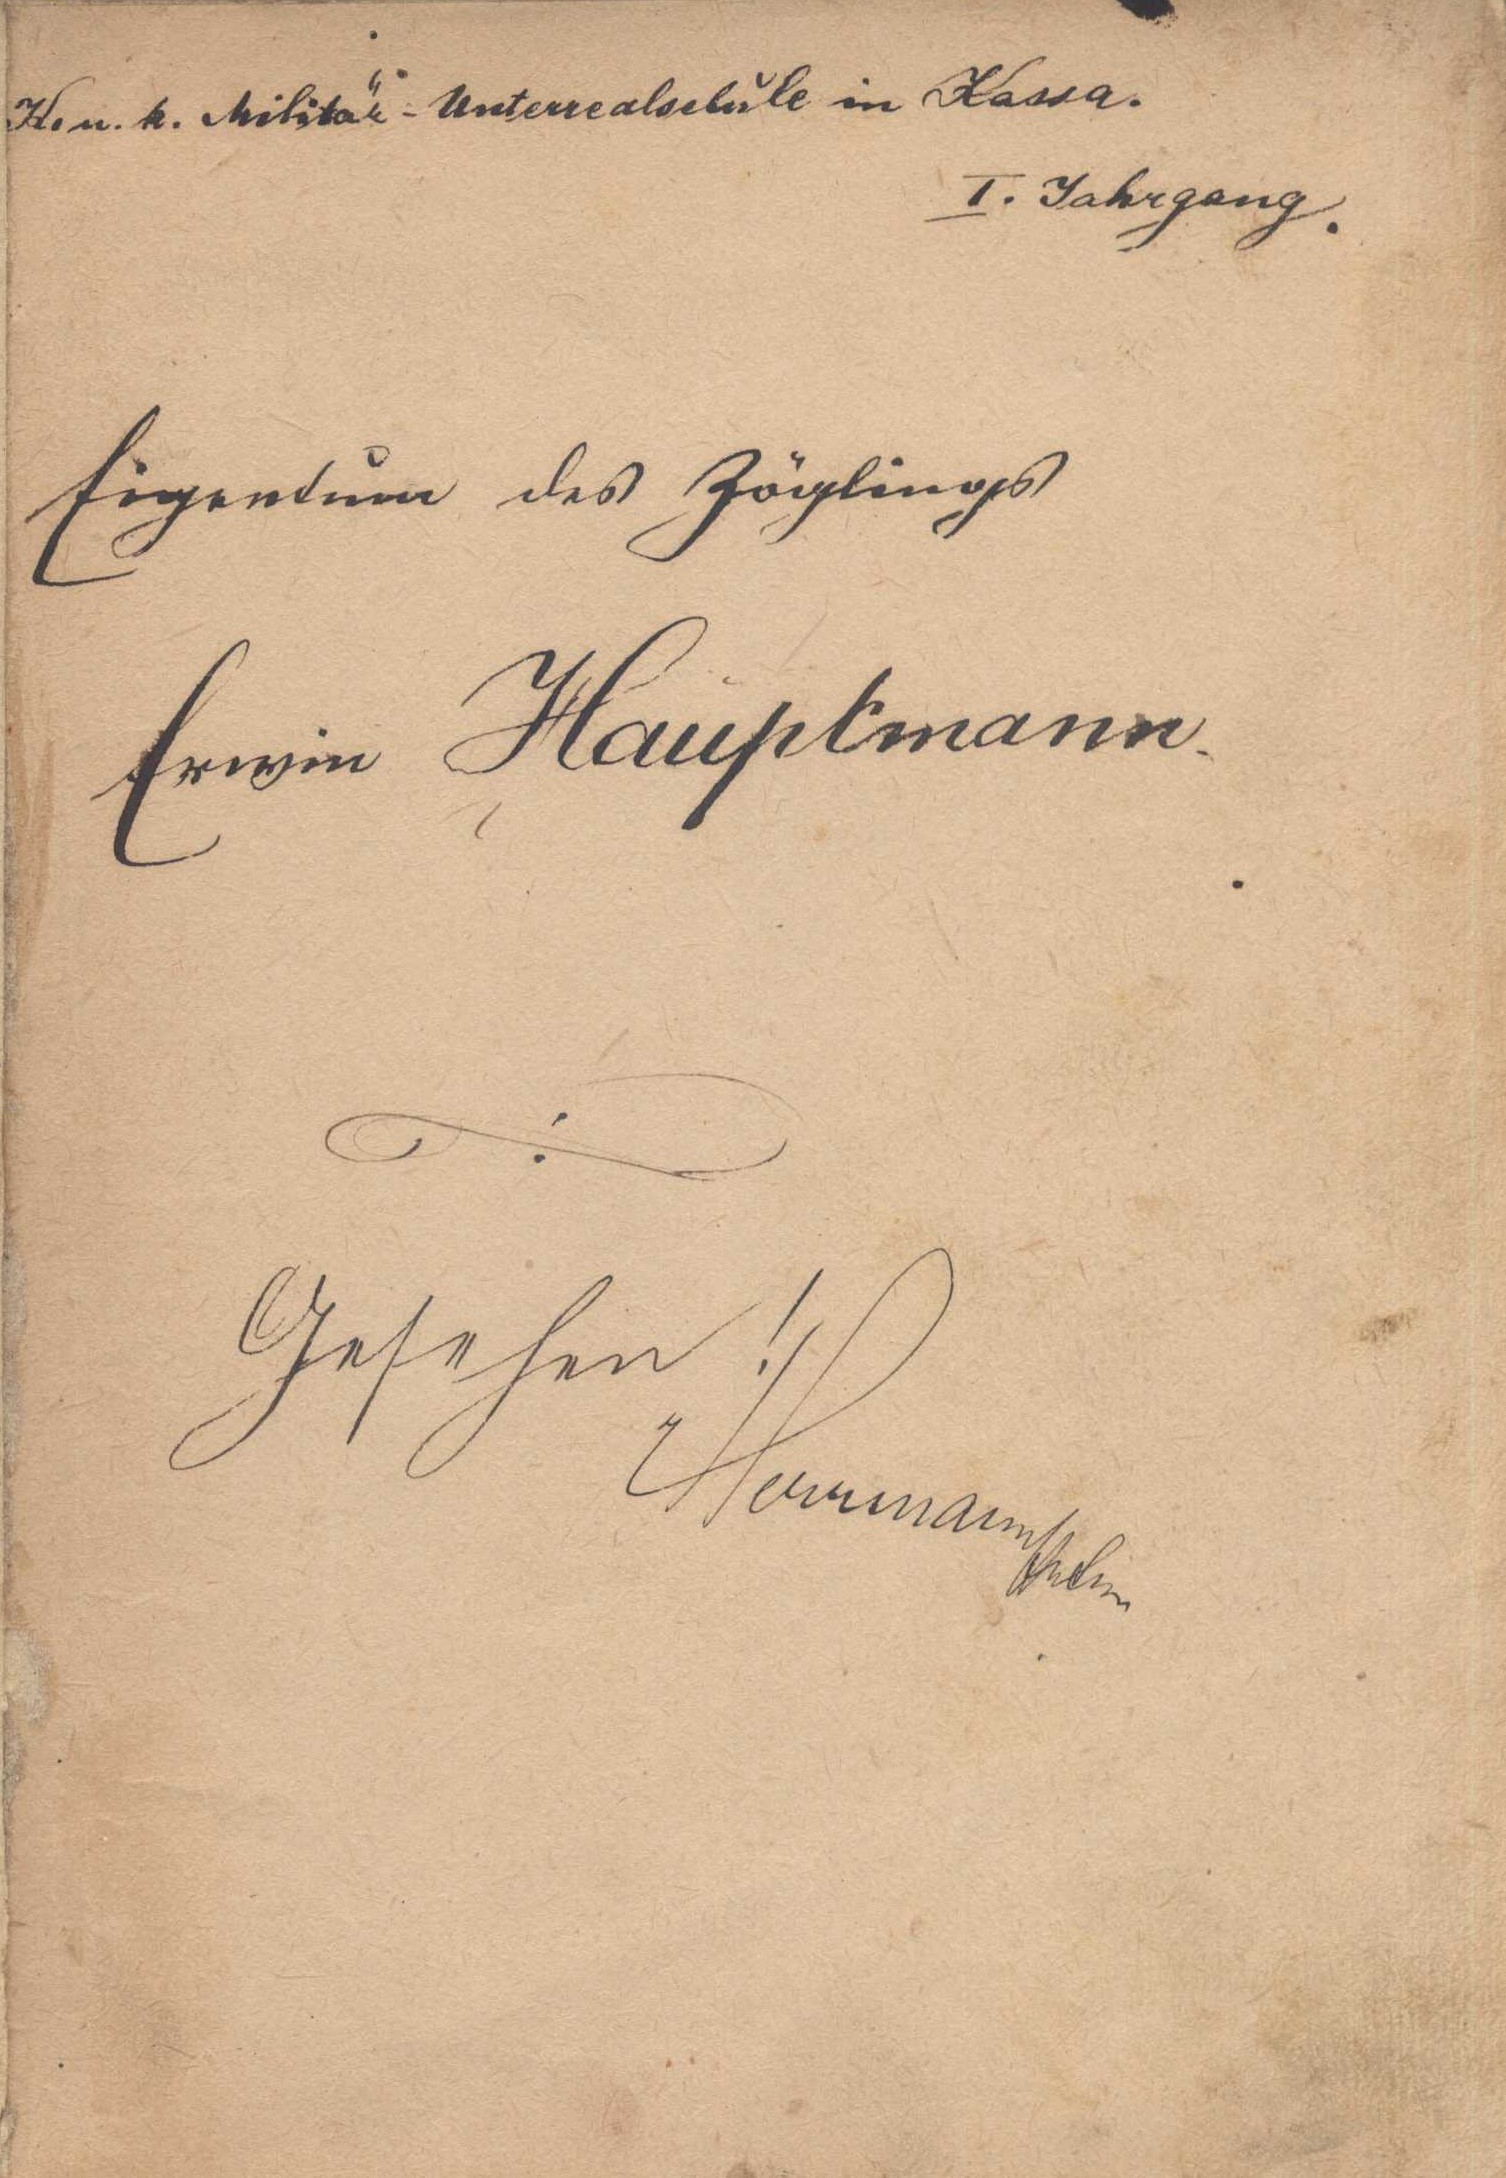 K. u. k. Militär-Unterrealschule in Kassa.
I. Jahrgang.
Eigentum des Zöglings
Erwin Hauptmann.
Gesehen!
Herrmann